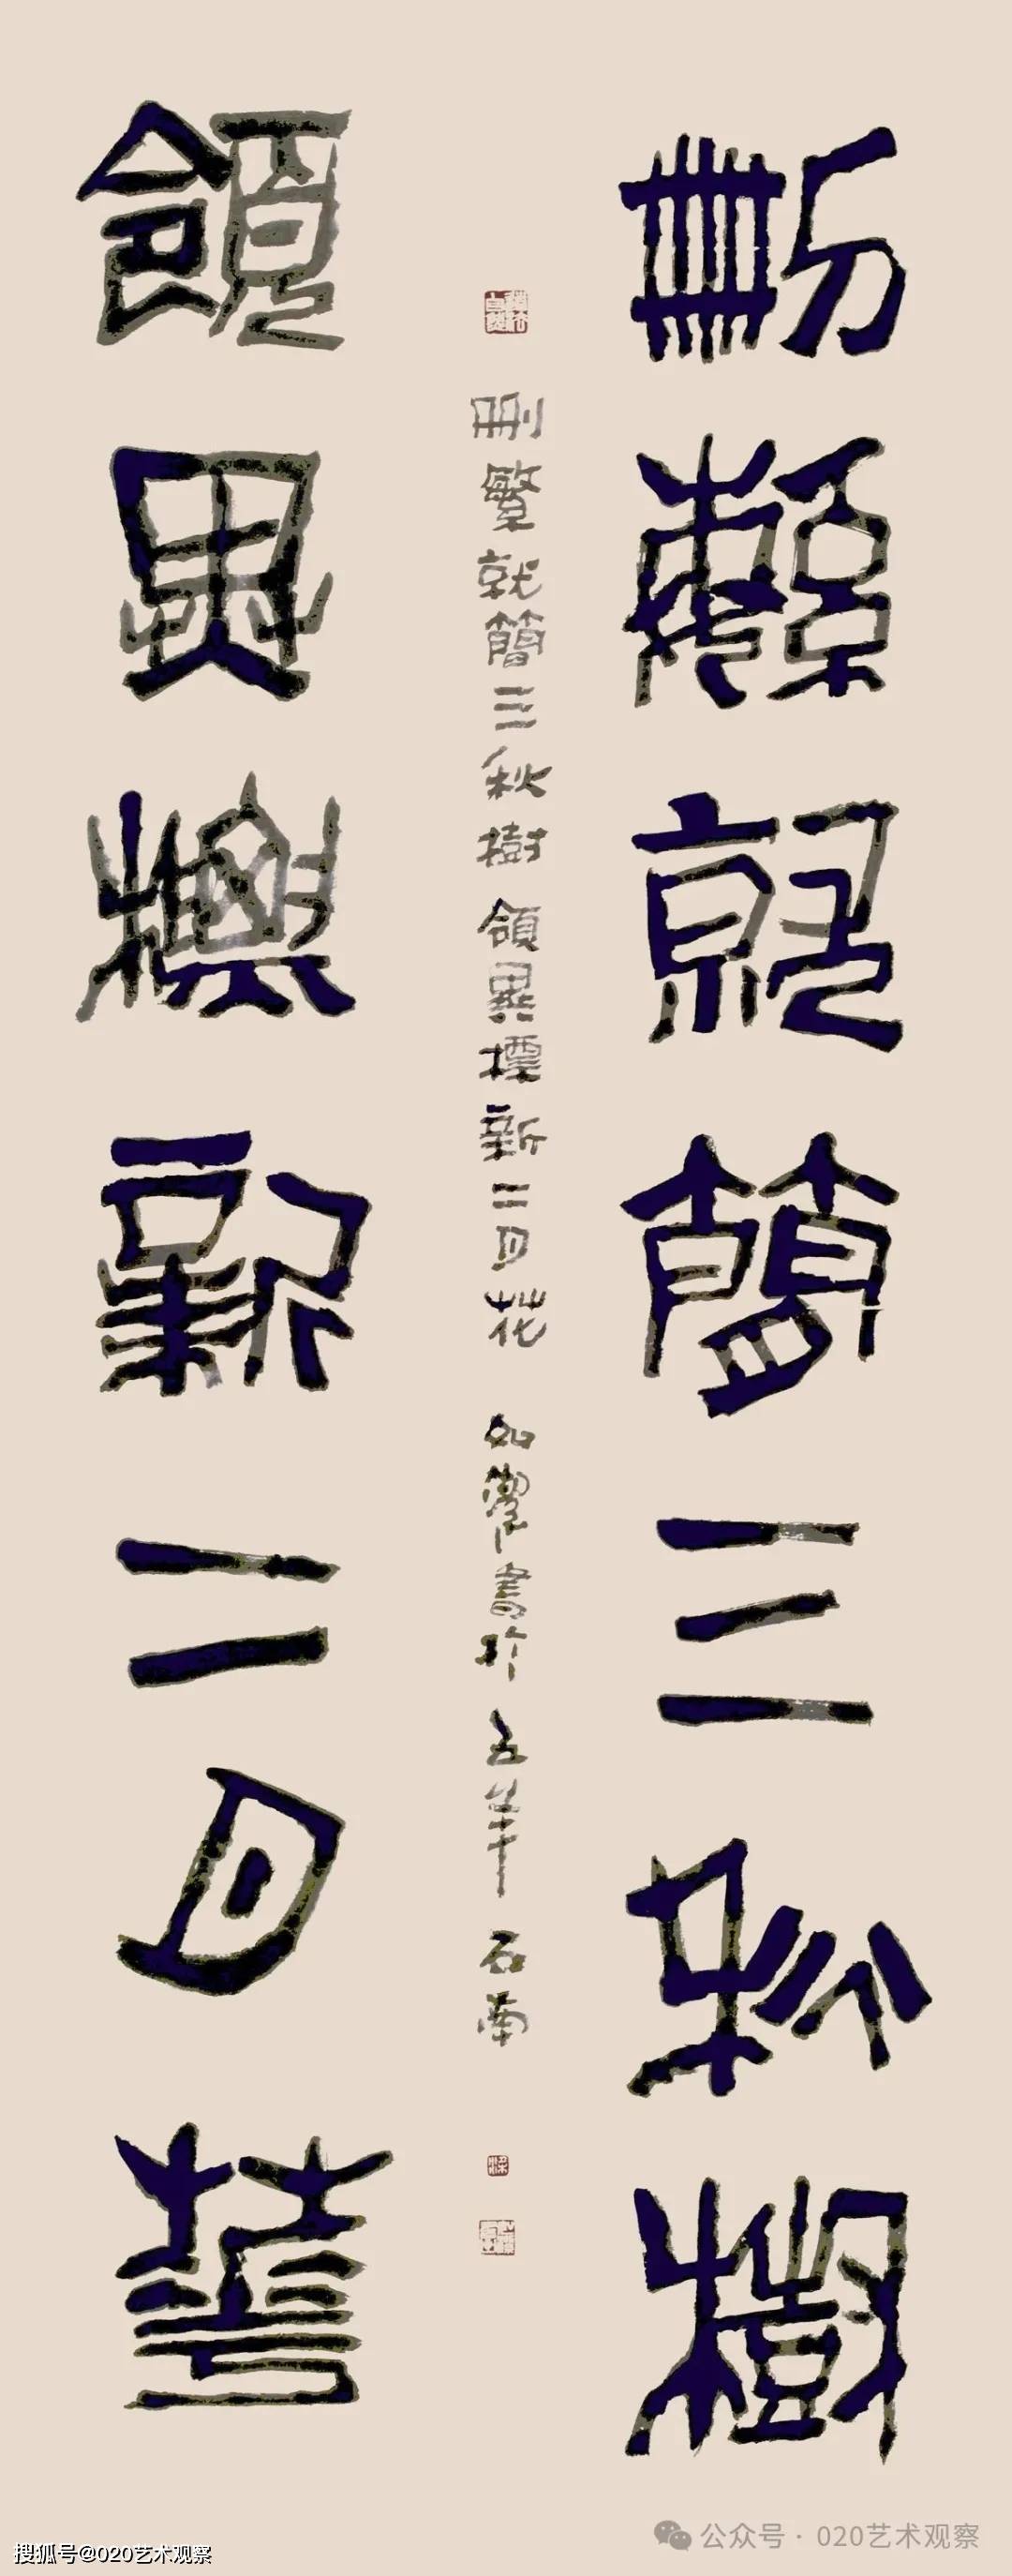 刪蘩就簡三秋樹
刪繁就簡三秋樹 領異標新二月花 如农書於五羊石南
領異標新二月華
搜狐号@020艺术观察
公众号 · 020艺术观察